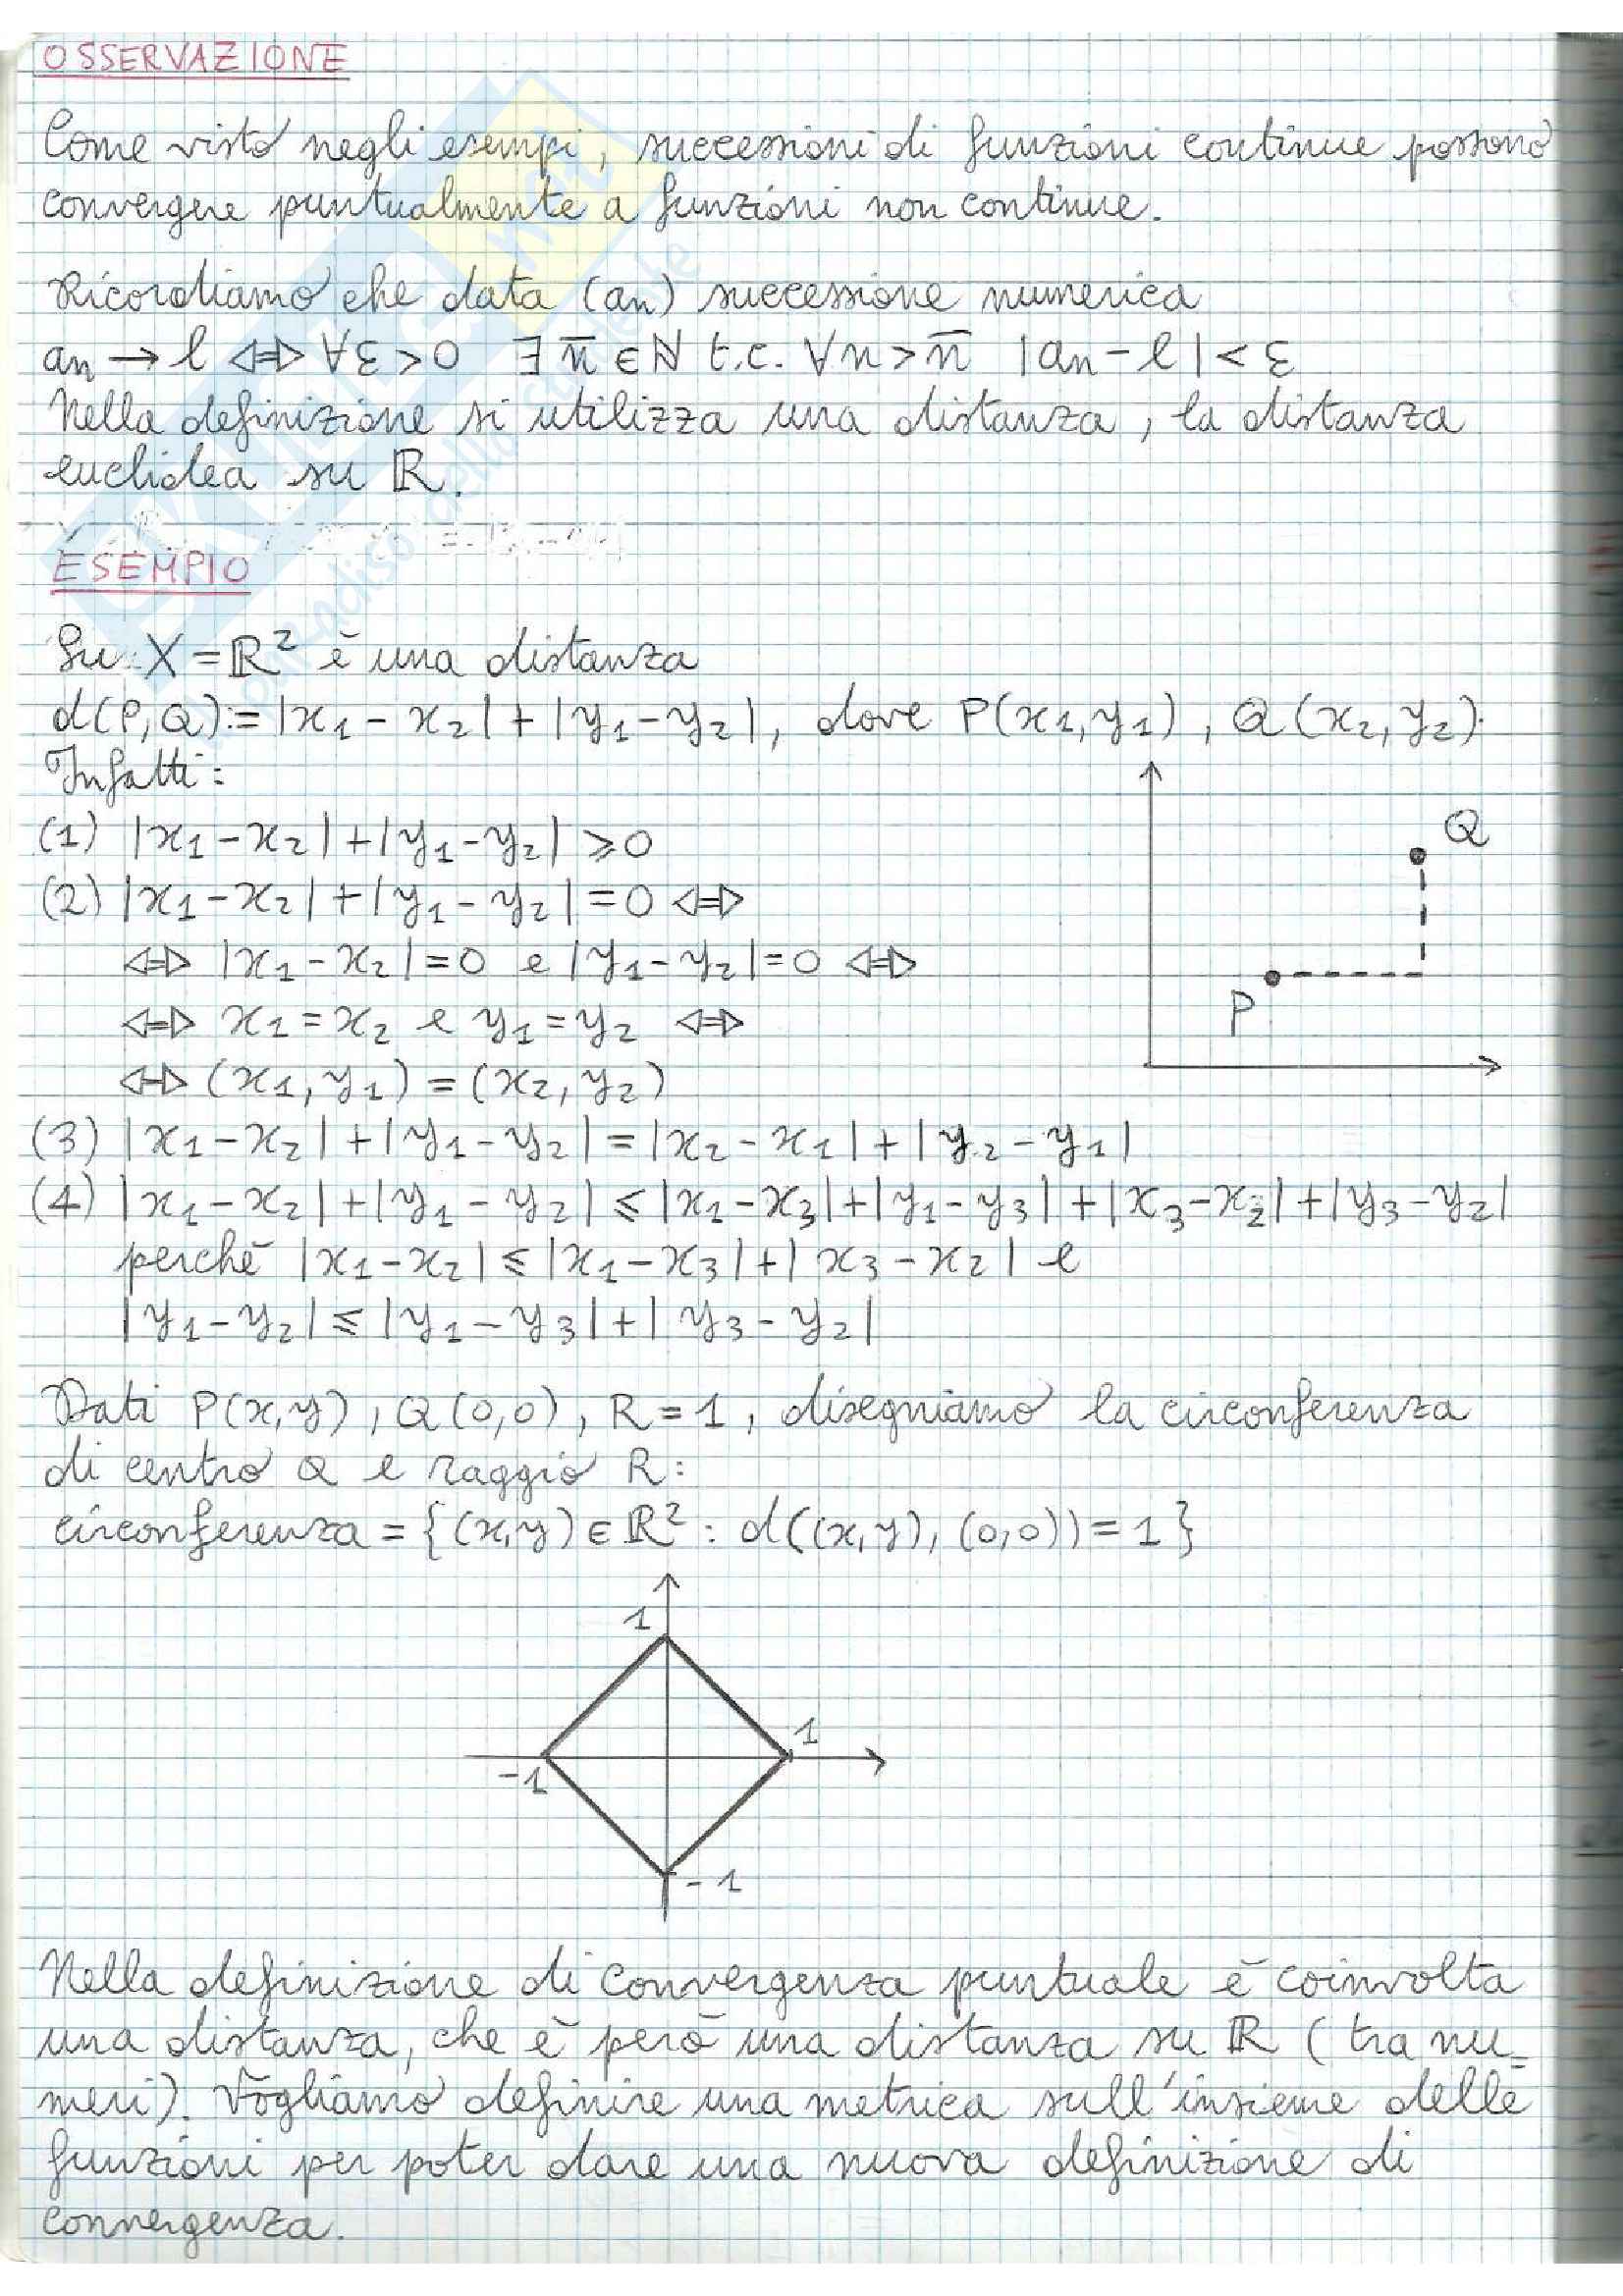 OSSERVAZIONE
Come visto negli esempi, successioni di funzioni continue possono
convergere puntualmente a funzioni non continue.
Ricordiamo che data (an) successione numerica
an → l ⇔ ∀ε > 0 ∃ n̅ ∈ ℕ t.c. ∀n > n̅ |an - l| < ε
Nella definizione si utilizza una distanza, la distanza
euclidea su ℝ.
ESEMPIO
Su X = ℝ² è una distanza
d(P,Q) := |x₁ - x₂| + |y₁ - y₂|, dove P(x₁,y₁), Q(x₂,y₂).
Infatti:
(1) |x₁ - x₂| + |y₁ - y₂| ⩾ 0
Q
(2) |x₁ - x₂| + |y₁ - y₂| = 0 ⇔
⇔ |x₁ - x₂| = 0 e |y₁ - y₂| = 0 ⇔
P
⇔ x₁ = x₂ e y₁ = y₂ ⇔
⇔ (x₁, y₁) = (x₂, y₂)
(3) |x₁ - x₂| + |y₁ - y₂| = |x₂ - x₁| + |y₂ - y₁|
(4) |x₁ - x₂| + |y₁ - y₂| ⩽ |x₁ - x₃| + |y₁ - y₃| + |x₃ - x₂| + |y₃ - y₂|
perchè |x₁ - x₂| ⩽ |x₁ - x₃| + |x₃ - x₂| e
|y₁ - y₂| ⩽ |y₁ - y₃| + |y₃ - y₂|
Dati P(x,y), Q(0,0), R = 1, disegniamo la circonferenza
di centro Q e raggio R:
circonferenza = {(x,y) ∈ ℝ² : d((x,y), (0,0)) = 1}
1
1
-1
-1
Nella definizione di convergenza puntuale è coinvolta
una distanza, che è però una distanza su ℝ (tra nu-
meri). Vogliamo definire una metrica sull'insieme delle
funzioni per poter dare una nuova definizione di
convergenza.